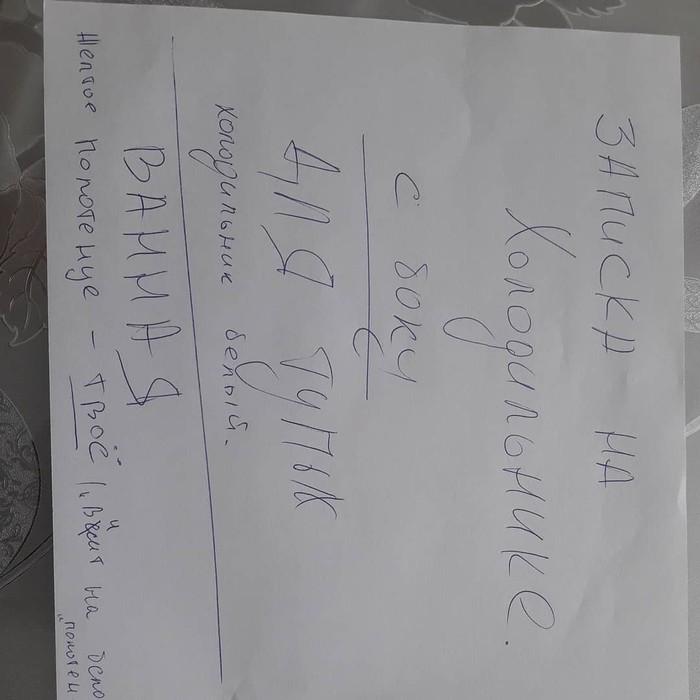 ЗАПИСКА НА
Холодильнике.
с боку
ДЛЯ ТУПЫХ
холодильник белый.
ВАННАЯ
Желтое полотенце - твоё! и на